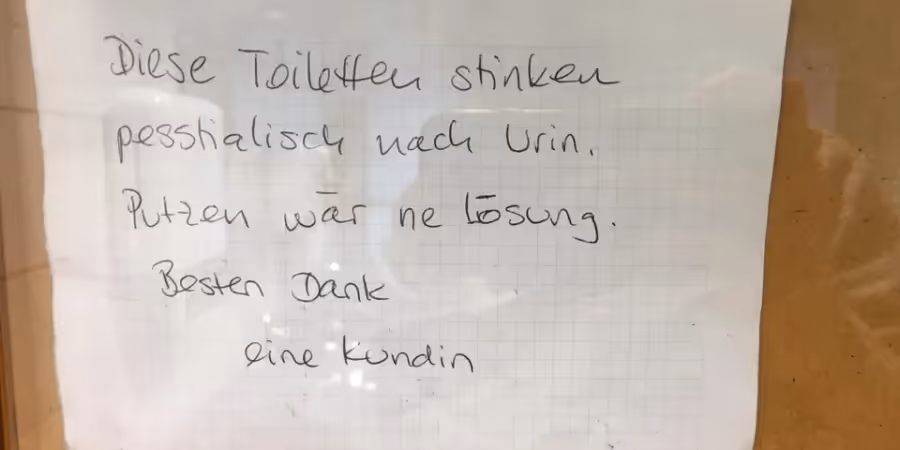 Diese Toiletten stinken
pesstialisch nach Urin.
Putzen wär ne Lösung.
Besten Dank
eine Kundin